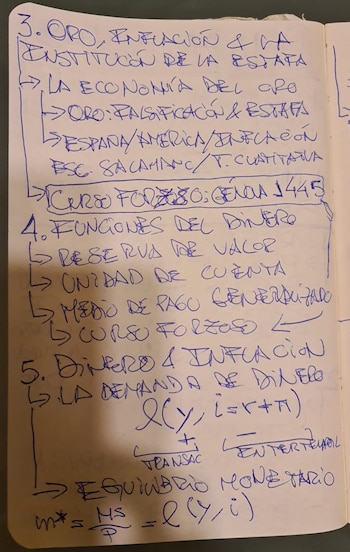 3. ORO, INFLACIÓN & LA
INSTITUCIÓN DE LA ESTAFA
→ LA ECONOMÍA DEL ORO
→ ORO: FALSIFICACIÓN & ESTAFA
→ ESPAÑA/AMÉRICA/INFLACIÓN
ESC. SALAMANC/T. CUATITATIVA
→ CURSO FORZOSO: GÉNOVA 1445
4. FUNCIONES DEL DINERO
↳ RESERVA DE VALOR
↳ UNIDAD DE CUENTA
↳ MEDIO DE PAGO GENERALIZADO
↳ CURSO FORZOSO ←
5. DINERO & INFLACION
↳ LA DEMANDA DE DINERO
l(y, i=r+π)
+ −
TRANSAC
→ EQUILIBRIO MONETARIO
m* = MS/P = l(y, i)